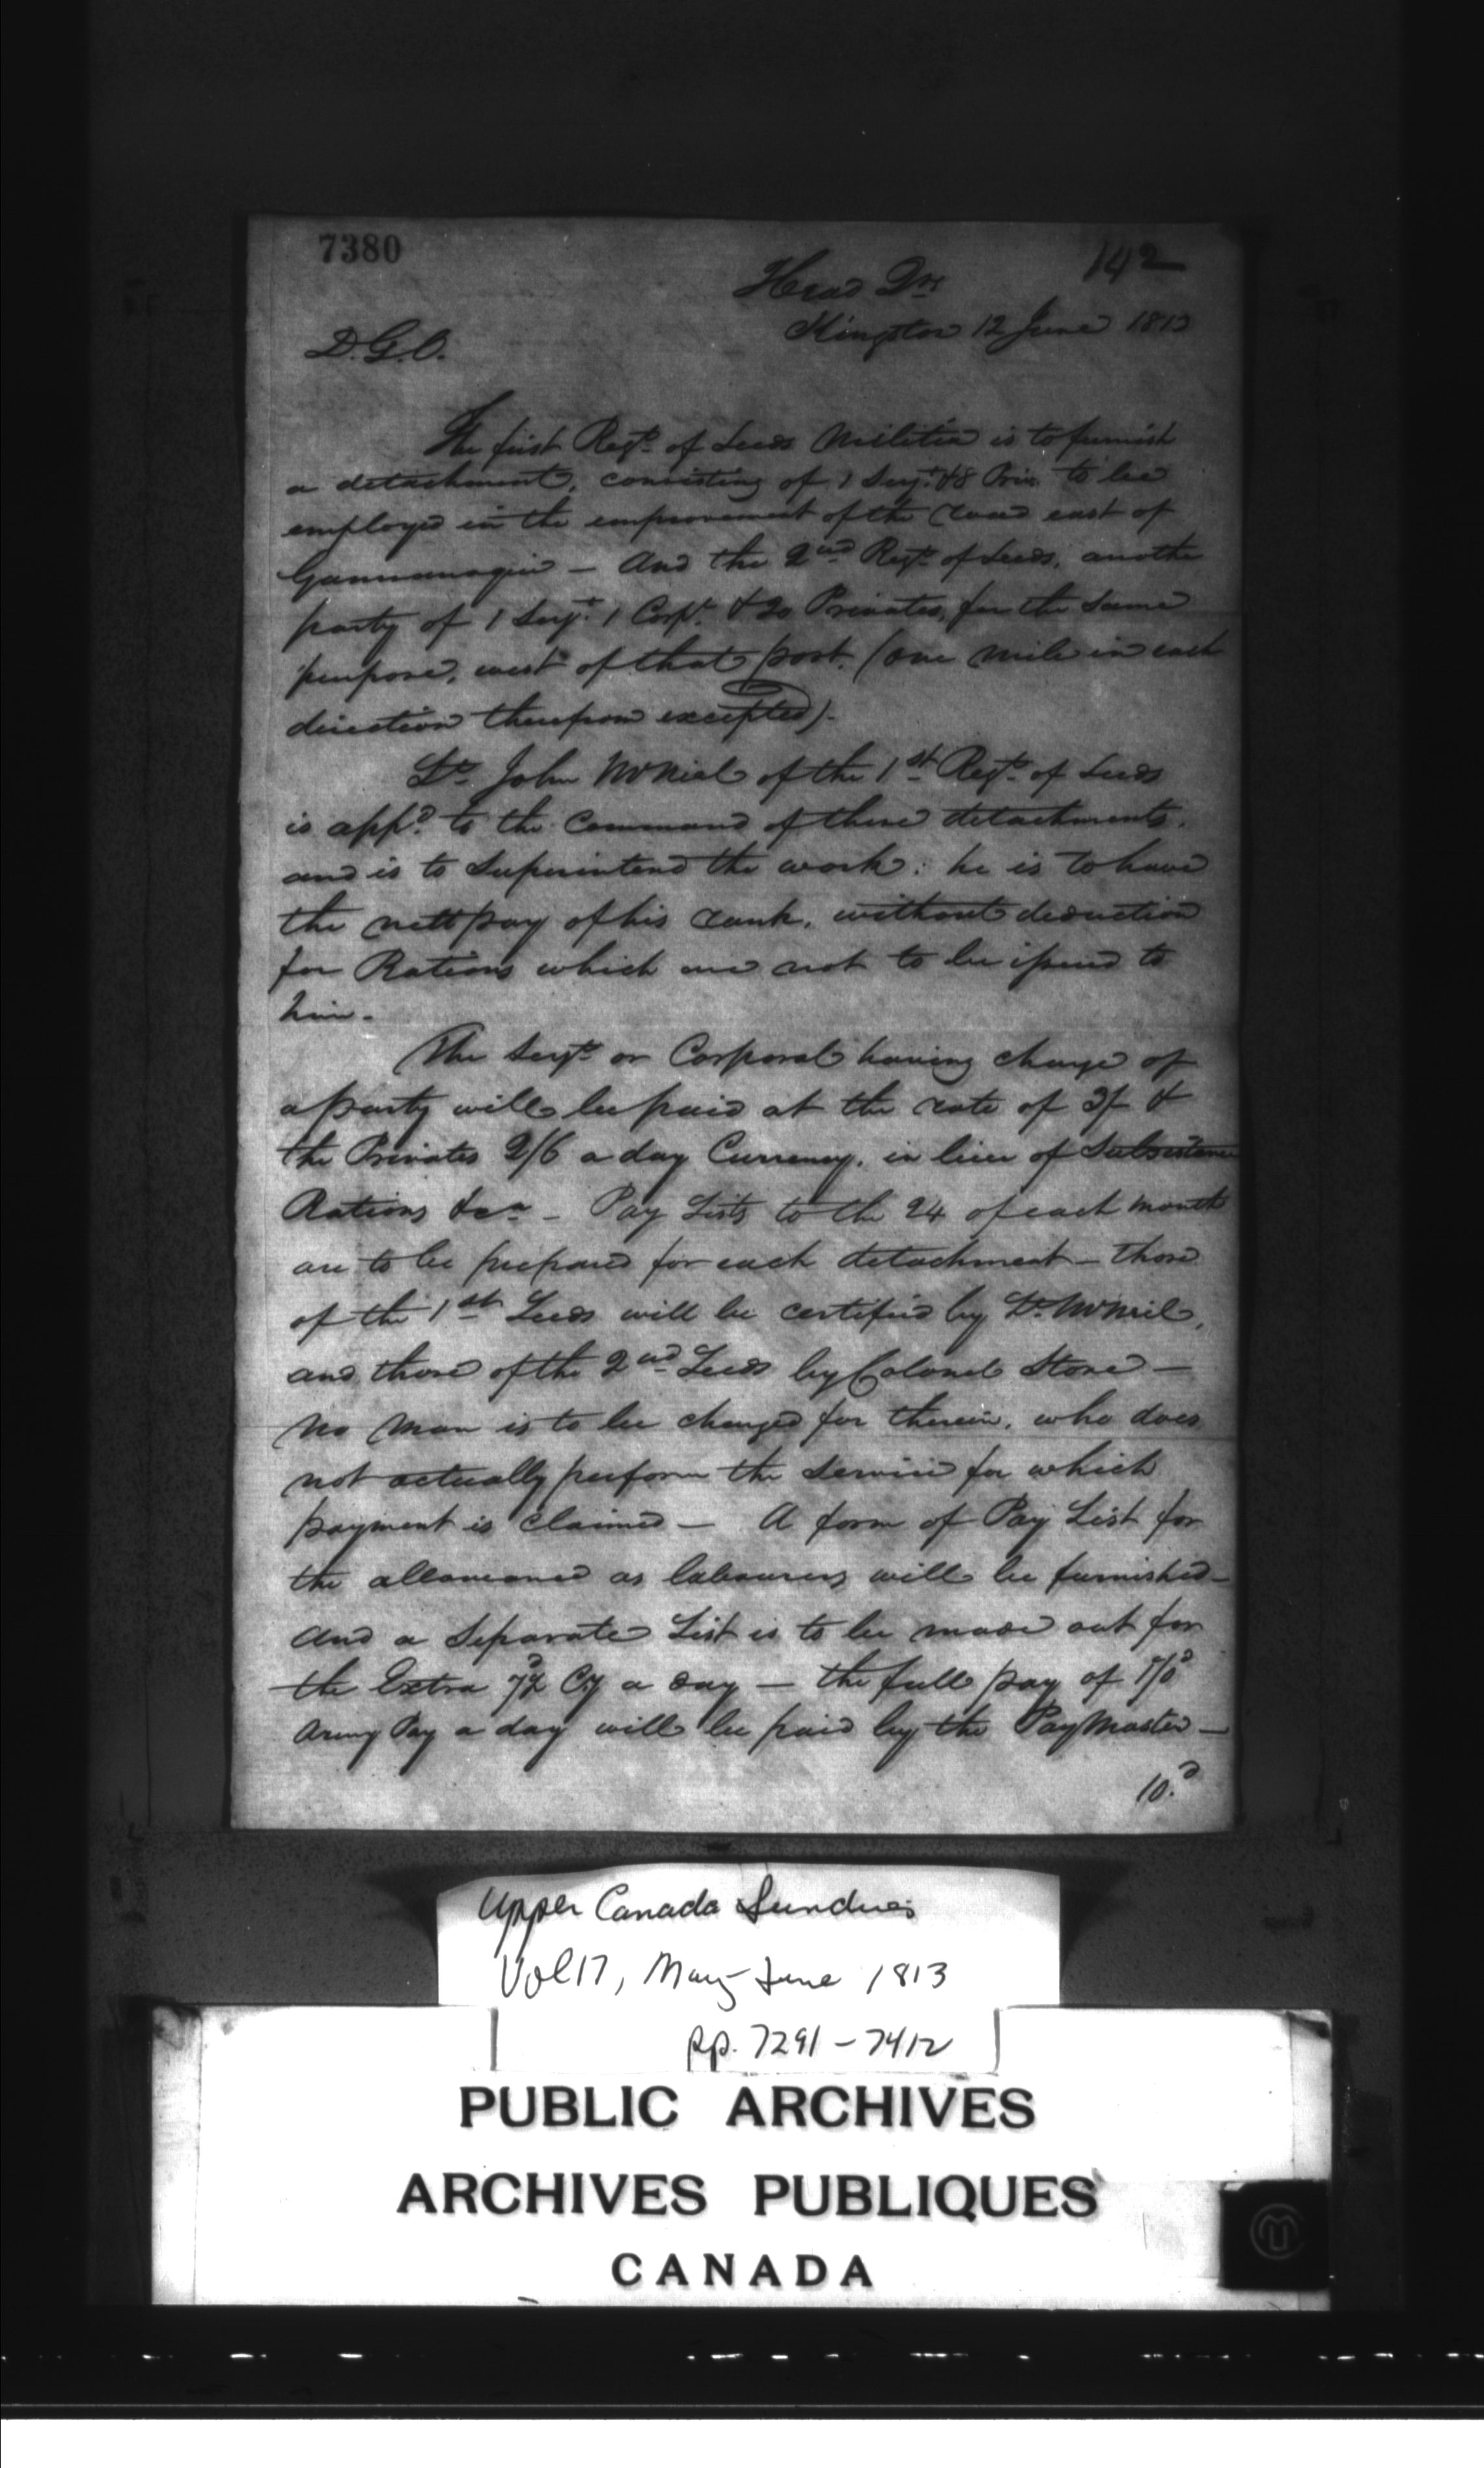 7380
142
Head Qrs
Kingston 12 June 1813
D.G.O.
The first Regt. of Leeds Militia is to furnish
a detachment, consisting of 1 Serjt. & 8 Priv. to be
employed in the improvement of the road east of
Gannanoqui — And the 2nd Regt. of Leeds, another
party of 1 Serjt. 1 Corpl. & 20 Privates, for the same
purpose, west of that post. (one mile in each
direction therefrom excepted).
Lt. John McNiel of the 1st Regt. of Leeds
is appd. to the Command of these detachments,
and is to Superintend the work: he is to have
the nett pay of his rank, without deduction
for Rations which are not to be issued to
him.
The Serjt. or Corporal having charge of
a party will be paid at the rate of 3/ &
the Privates 2/6 a day Currency, in lieu of Subsistence
Rations &ca. — Pay Lists to the 24 of each month
are to be prepared for each detachment — those
of the 1st Leeds will be certified by Lt. McNeil,
and those of the 2nd Leeds by Colonel Stone —
No Man is to be charged for therein, who does
not actually perform the Service for which
payment is claimed — A form of Pay List for
the allowance as labourers will be furnished —
And a Separate List is to be made out for
the Extra Cy a day — the full pay of
Army Pay a day will be paid by the PayMaster —
10.d
Upper Canada Sundries
Vol 17, May-June 1813
pp. 7291-7412
PUBLIC ARCHIVES
ARCHIVES PUBLIQUES
CANADA